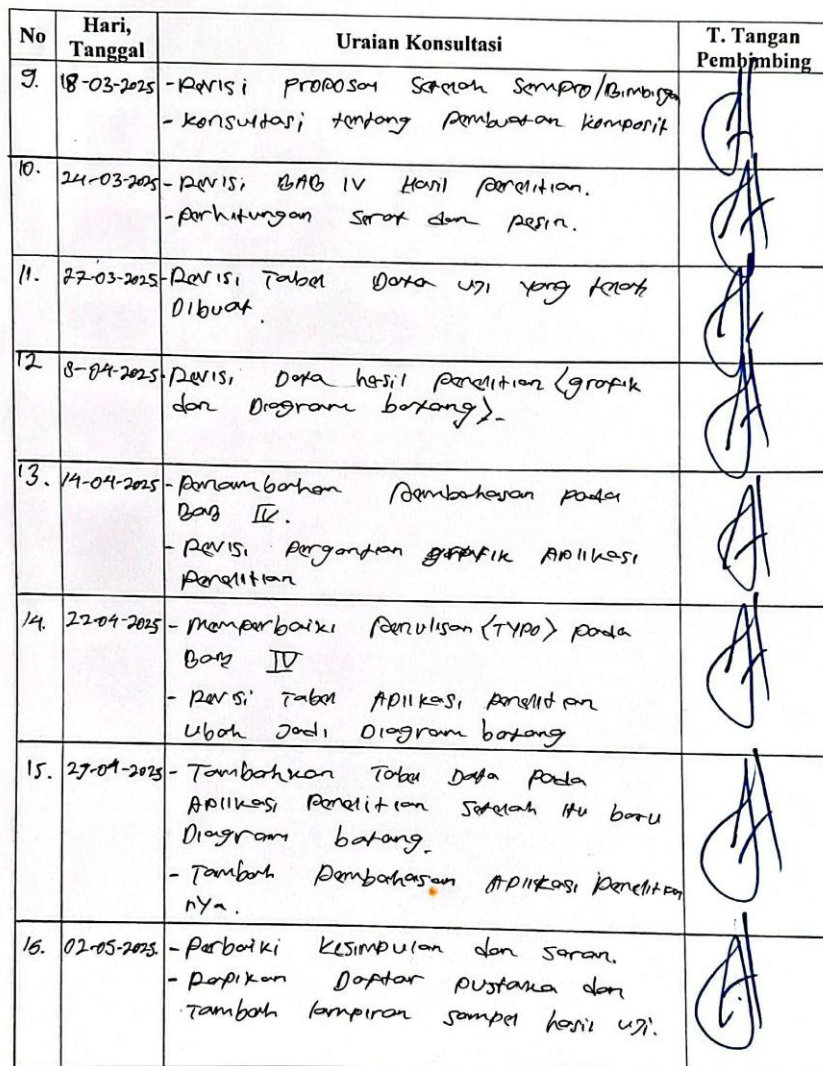 No Hari, Tanggal Uraian Konsultasi T. Tangan Pembimbing
9. 18-03-2025 - Revisi Proposal Setelah Sempro/Bimbingan
- Konsultasi tentang Pembuatan Komposit
10. 24-03-2025 - Revisi BAB IV Hasil Penelitian.
- Perhitungan Serat dan Resin.
11. 27-03-2025 - Revisi Tabel Data uji yang telah
Dibuat.
12 8-04-2025 - Revisi Data hasil penelitian (grafik
dan Diagram batang).
13. 14-04-2025 - Penambahan Pembahasan pada
BAB IV.
- Revisi Pergantian grafik Aplikasi
Penelitian
14. 22-04-2025 - Memperbaiki Penulisan (TYPO) pada
Bab IV
- Revisi Tabel Aplikasi penelitian
Ubah Jadi Diagram batang
15. 29-04-2025 - Tambahkan Tabel Data Pada
Aplikasi Penelitian Setelah itu baru
Diagram batang.
- Tambah Pembahasan Aplikasi Penelitian
nya.
16. 02-05-2025. - Perbaiki Kesimpulan dan saran.
- Rapikan Daftar Pustaka dan
Tambah lampiran sampel hasil uji.